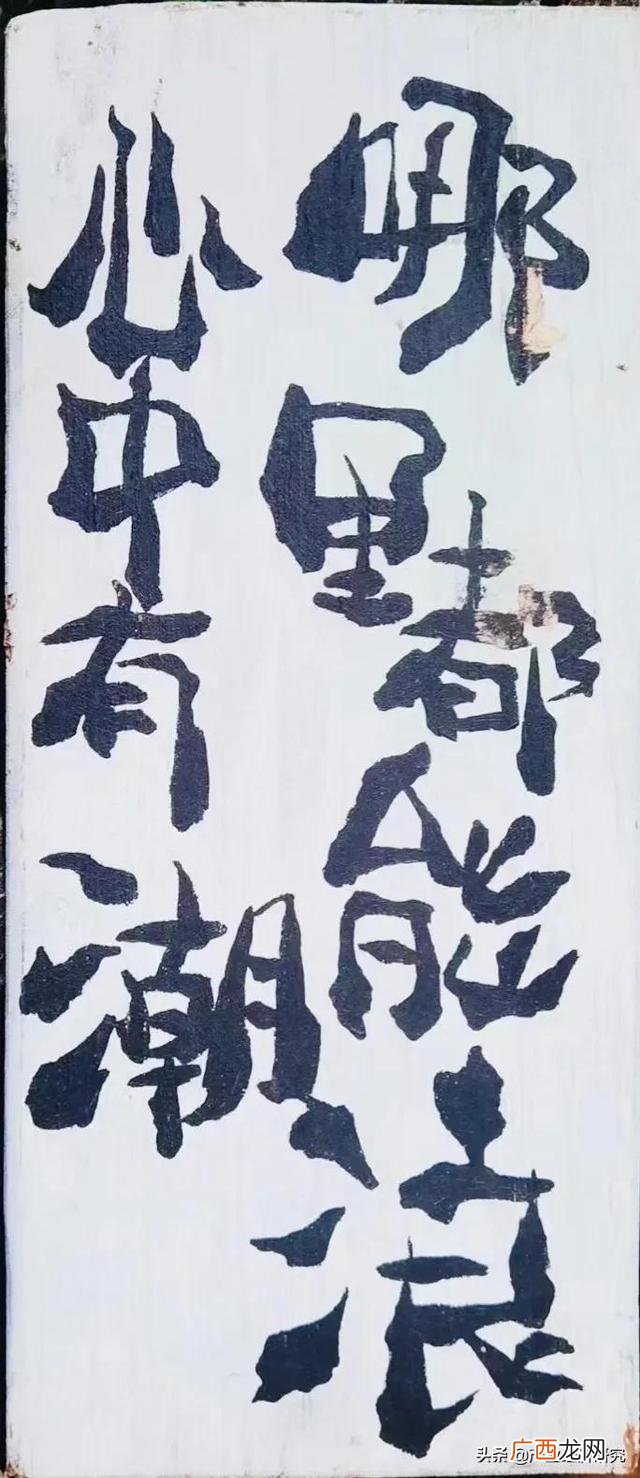 哪里都能浪
心中有潮
广西龙网